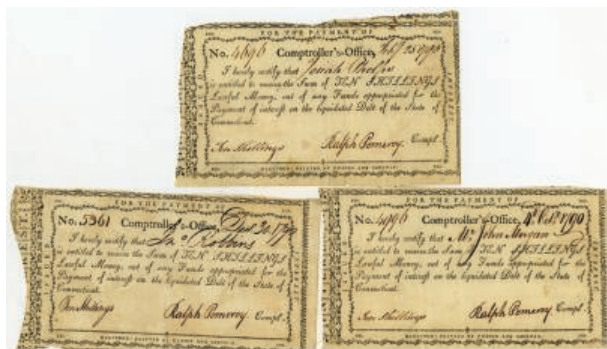 FOR THE PAYMENT OF
No. 4696 Comptroller's-Office, 1790
I hereby certify that Josiah
is entitled to receive the Sum of TEN SHILLINGS
Lawful Money, out of any Funds appropriated for the
Payment of interest on the liquidated Debt of the State of
Connecticut.
Ten Shillings Ralph Pomeroy. Compt.
HARTFORD: PRINTED BY HUDSON AND GOODWIN.
FOR THE PAYMENT OF
No. 5361 Comptroller's-Office, 20 1790
I hereby certify that Jno Robbins
is entitled to receive the Sum of TEN SHILLINGS
Lawful Money, out of any Funds appropriated for the
Payment of interest on the liquidated Debt of the State of
Connecticut.
Ten Shillings Ralph Pomeroy. Compt.
HARTFORD: PRINTED BY HUDSON AND GOODWIN.
FOR THE PAYMENT OF
No. 4096 Comptroller's-Office, 1790
I hereby certify that Mr John Morgan
is entitled to receive the Sum of TEN SHILLINGS
Lawful Money, out of any Funds appropriated for the
Payment of interest on the liquidated Debt of the State of
Connecticut.
Ten Shillings Ralph Pomeroy. Compt.
HARTFORD: PRINTED BY HUDSON AND GOODWIN.